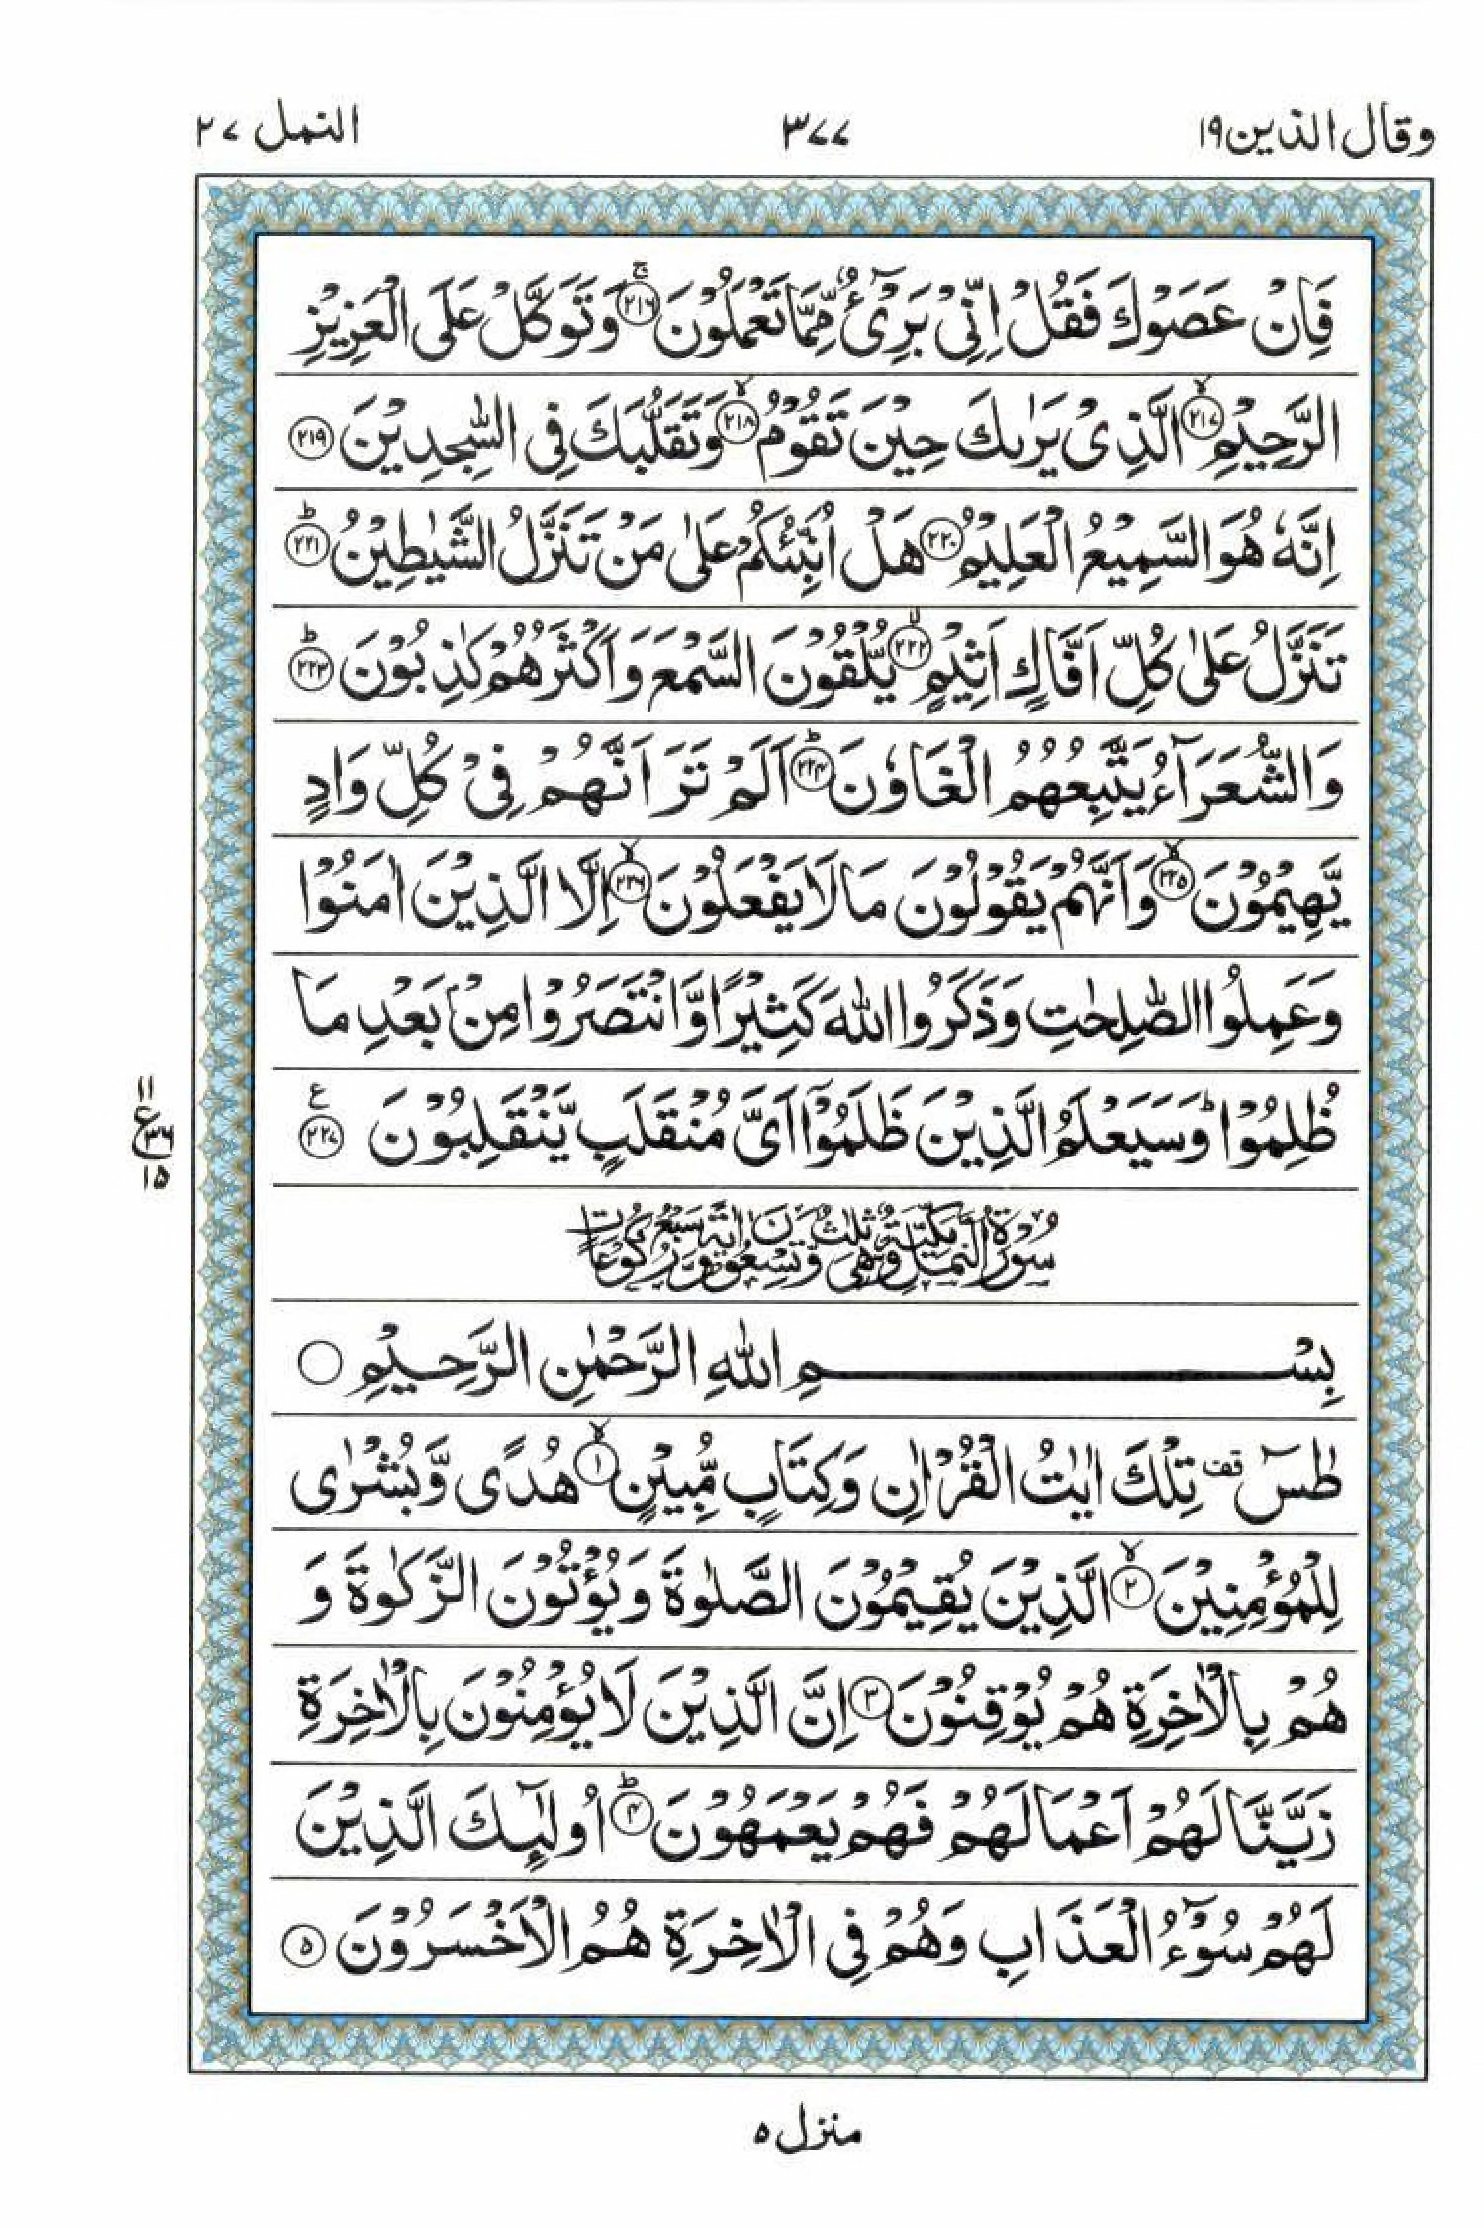 وقال الذين ١٩
٣٧٧
النمل ٢٧
فَاِنْ عَصَوْكَ فَقُلْ اِنِّیْ بَرِیْٓءٌ مِّمَّا تَعْمَلُوْنَ ﴿۲۱۶﴾ۚ وَتَوَكَّلْ عَلَی الْعَزِیْزِ
الرَّحِیْمِ ﴿۲۱۷﴾ۙ الَّذِیْ یَرٰىكَ حِیْنَ تَقُوْمُ ﴿۲۱۸﴾ۙ وَتَقَلُّبَكَ فِی السّٰجِدِیْنَ ﴿۲۱۹﴾
اِنَّهٗ هُوَ السَّمِیْعُ الْعَلِیْمُ ﴿۲۲۰﴾ هَلْ اُنَبِّئُكُمْ عَلٰی مَنْ تَنَزَّلُ الشَّیٰطِیْنُ ﴿۲۲۱﴾ؕ
تَنَزَّلُ عَلٰی كُلِّ اَفَّاكٍ اَثِیْمٍ ﴿۲۲۲﴾ۙ یُّلْقُوْنَ السَّمْعَ وَاَكْثَرُهُمْ كٰذِبُوْنَ ﴿۲۲۳﴾ؕ
وَالشُّعَرَآءُ یَتَّبِعُهُمُ الْغَاوٗنَ ﴿۲۲۴﴾ؕ اَلَمْ تَرَ اَنَّهُمْ فِیْ كُلِّ وَادٍ
یَّهِیْمُوْنَ ﴿۲۲۵﴾ۙ وَاَنَّهُمْ یَقُوْلُوْنَ مَا لَا یَفْعَلُوْنَ ﴿۲۲۶﴾ۙ اِلَّا الَّذِیْنَ اٰمَنُوْا
وَعَمِلُوا الصّٰلِحٰتِ وَذَكَرُوا اللّٰهَ كَثِیْرًا وَّانْتَصَرُوْا مِنْۢ بَعْدِ مَا
ظُلِمُوْا ؕ وَسَیَعْلَمُ الَّذِیْنَ ظَلَمُوْۤا اَیَّ مُنْقَلَبٍ یَّنْقَلِبُوْنَ ﴿۲۲۷﴾ ع
١١
ع ٣٦
١٥
سُوْرَةُ النَّمْلِ مَكِّيَّةٌ وَّهِيَ ثَلٰثٌ وَّتِسْعُوْنَ اٰيَةً وَّسَبْعُ رُكُوْعَاتٍ
بِسْمِ اللّٰهِ الرَّحْمٰنِ الرَّحِیْمِ
طٰسٓ قف تِلْكَ اٰیٰتُ الْقُرْاٰنِ وَكِتَابٍ مُّبِیْنٍ ﴿۱﴾ۙ هُدًی وَّبُشْرٰی
لِلْمُؤْمِنِیْنَ ﴿۲﴾ۙ الَّذِیْنَ یُقِیْمُوْنَ الصَّلٰوةَ وَیُؤْتُوْنَ الزَّكٰوةَ وَ
هُمْ بِالْاٰخِرَةِ هُمْ یُوْقِنُوْنَ ﴿۳﴾ اِنَّ الَّذِیْنَ لَا یُؤْمِنُوْنَ بِالْاٰخِرَةِ
زَیَّنَّا لَهُمْ اَعْمَالَهُمْ فَهُمْ یَعْمَهُوْنَ ﴿۴﴾ؕ اُولٰٓئِكَ الَّذِیْنَ
لَهُمْ سُوْٓءُ الْعَذَابِ وَهُمْ فِی الْاٰخِرَةِ هُمُ الْاَخْسَرُوْنَ ﴿۵﴾
منزل ٥